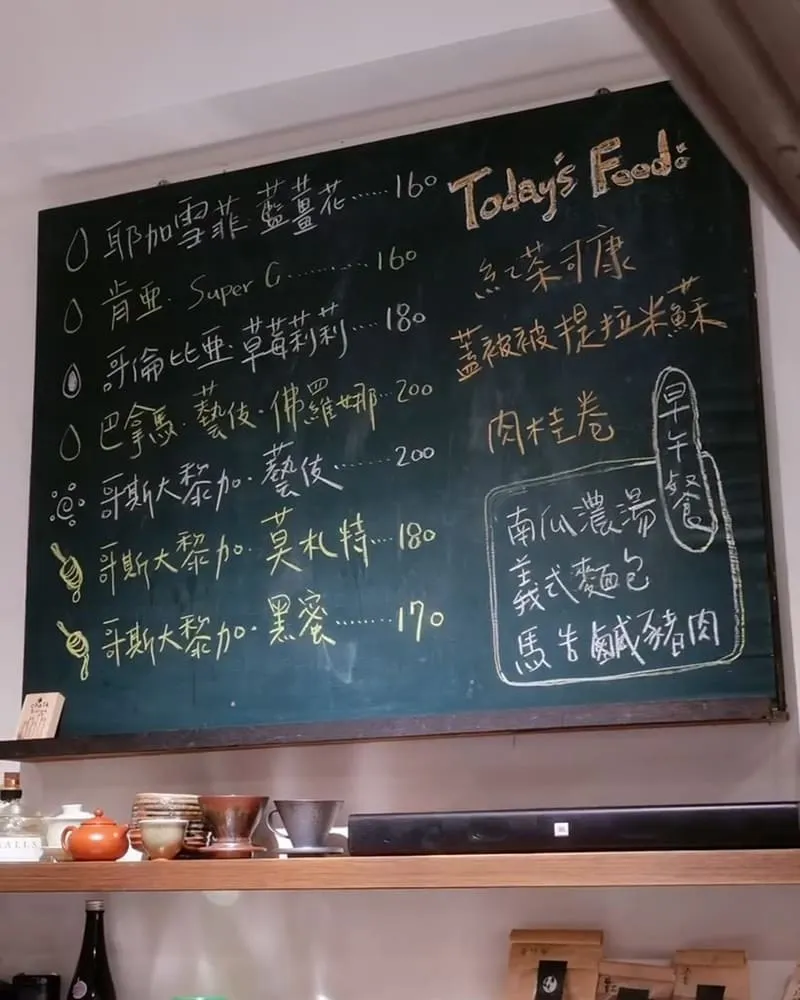 耶加雪菲·藍薑花......160
肯亞·Super G..........160
哥倫比亞·草莓莉莉....180
巴拿馬·藝伎·佛羅娜...200
哥斯大黎加·藝伎.......200
哥斯大黎加·莫札特...180
哥斯大黎加·黑蜜........170
Today's Food:
紅茶司康
蓋被被提拉米蘇
肉桂卷
早午餐
南瓜濃湯
義式麵包
馬告鹹豬肉
JBL